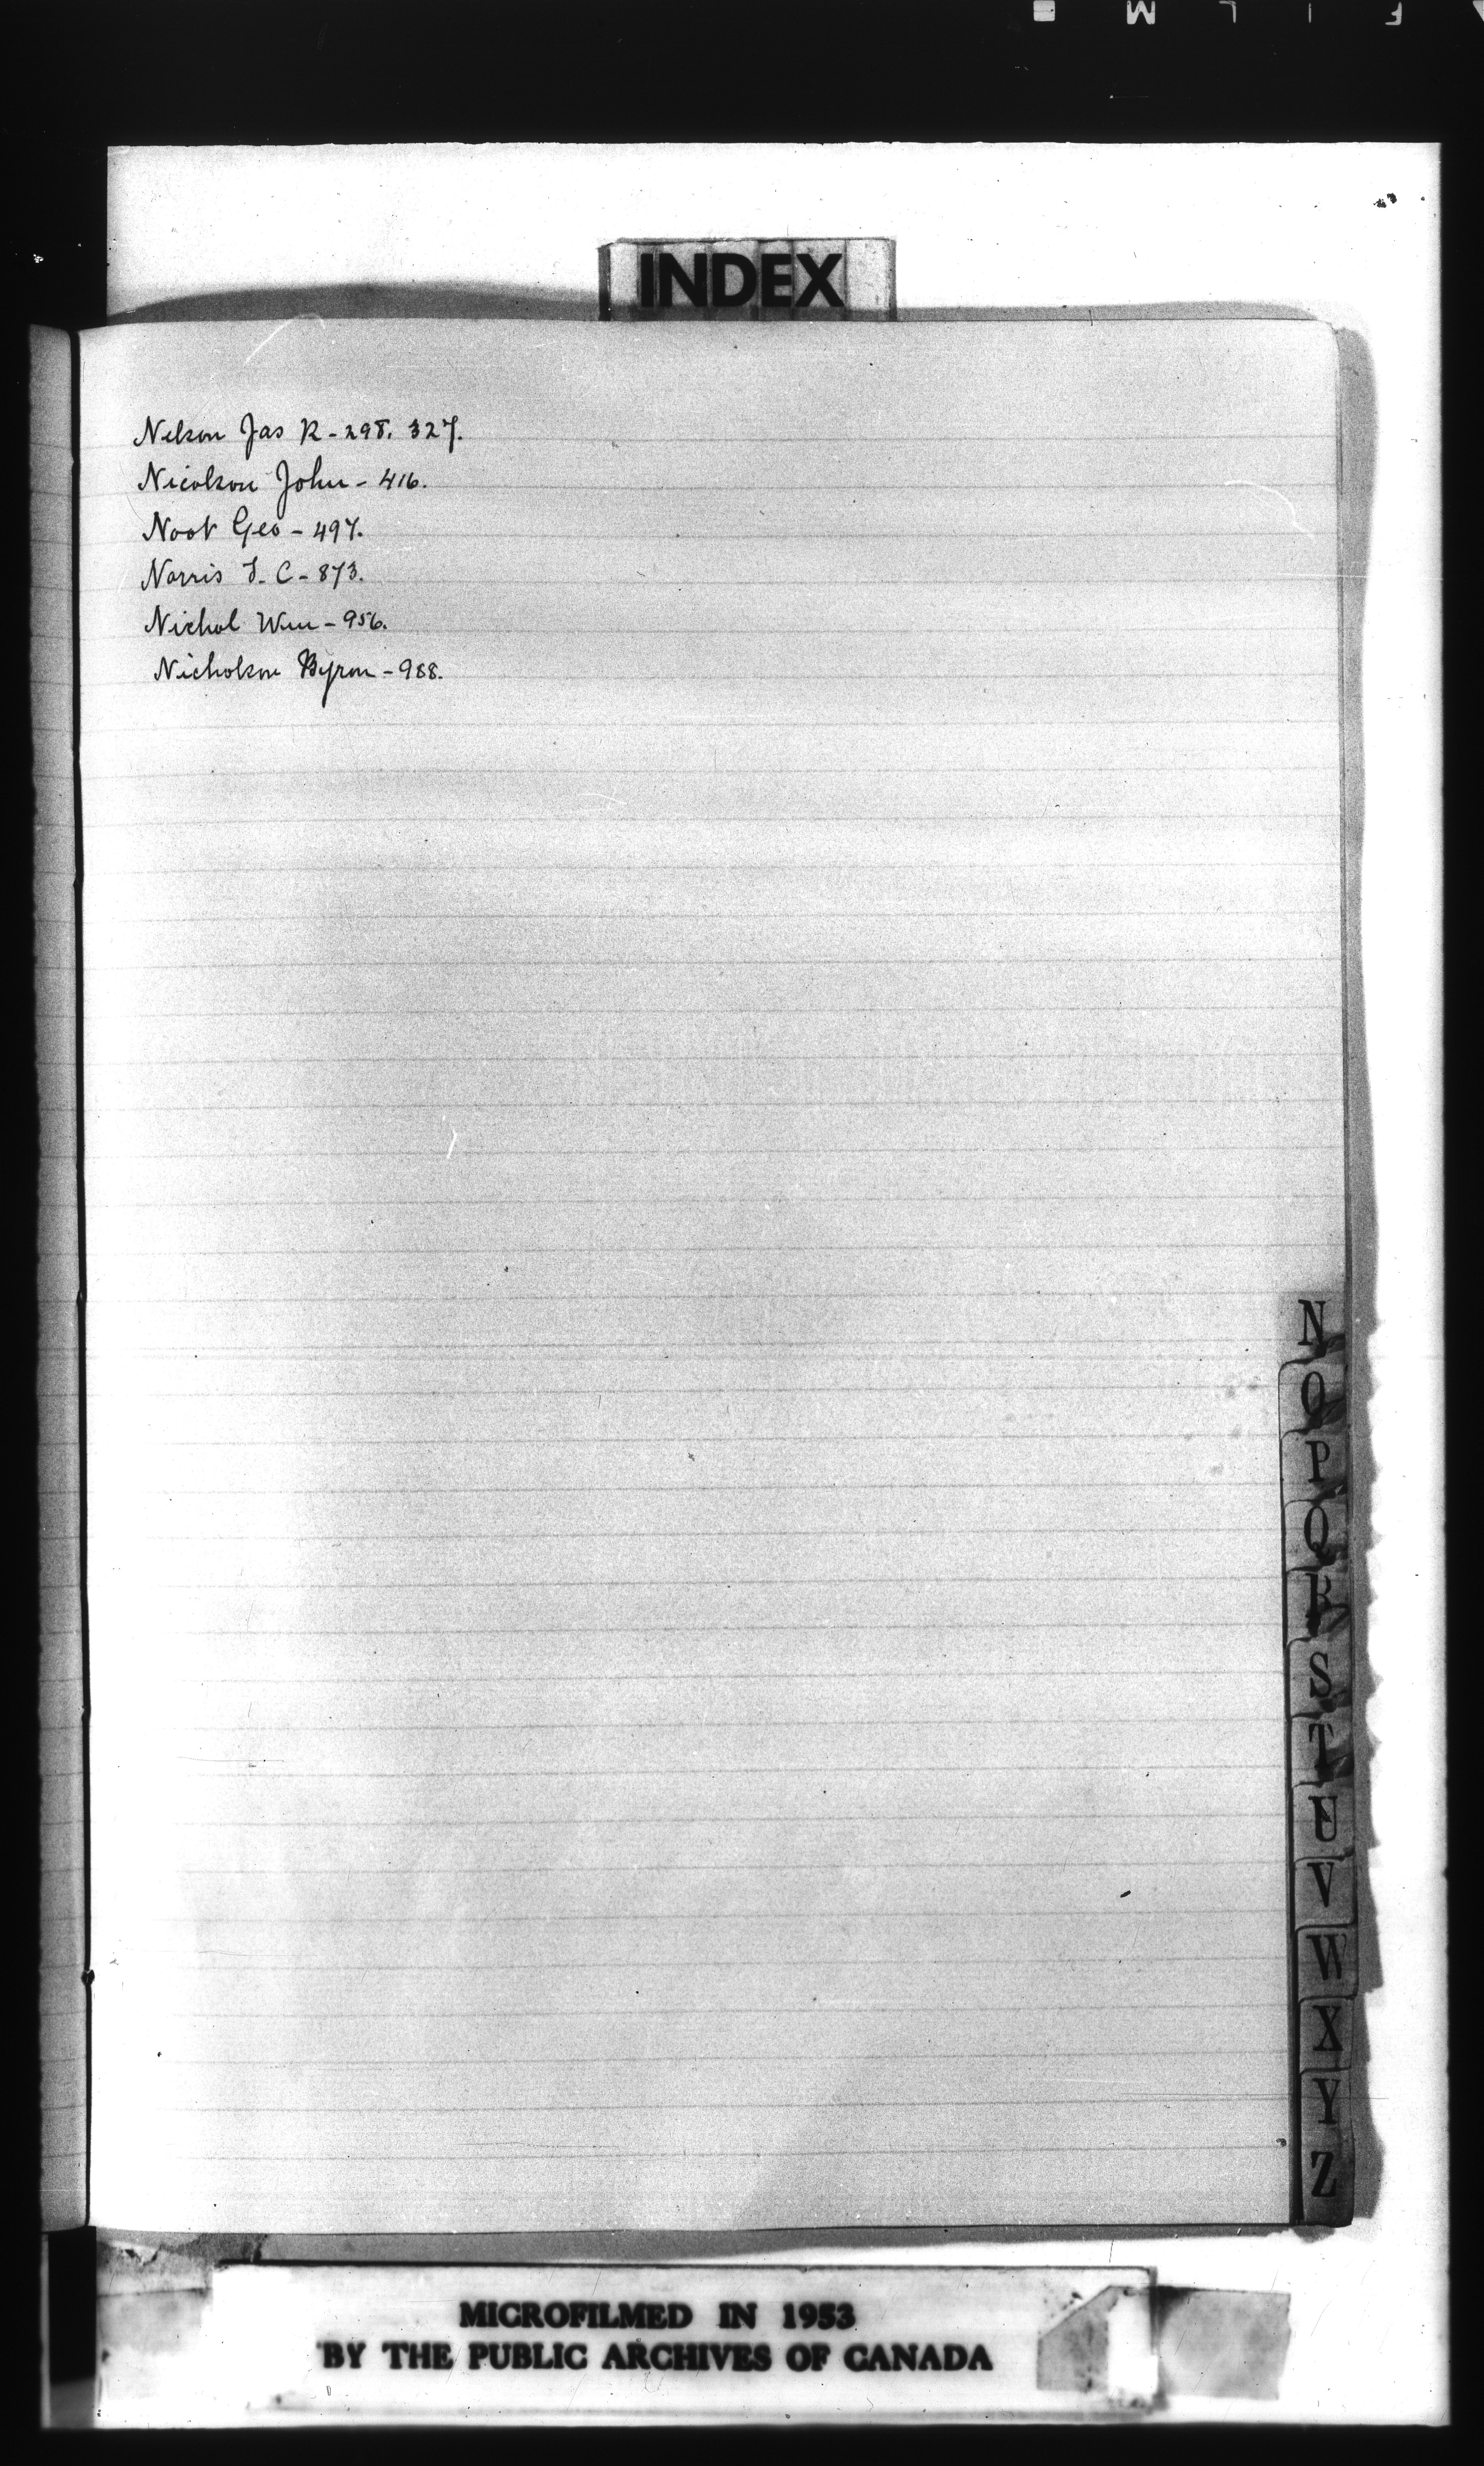 INDEX
Nelson Jas R - 298. 327.
Nicolson John - 416.
Noot Geo - 497.
Norris T. C - 873.
Nichol Wm - 956.
Nicholson Byron - 988.
N
O
P
Q
R
S
T
U
V
W
X
Y
Z
MICROFILMED IN 1953
BY THE PUBLIC ARCHIVES OF CANADA